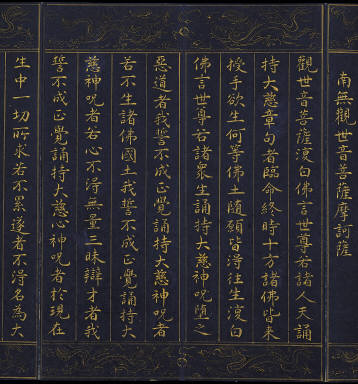 南無觀世音菩薩摩訶薩
觀世音菩薩復白佛言世尊若諸人天誦
持大慈章句者臨命終時十方諸佛皆來
授手欲生何等佛土隨願皆得往生復白
佛言世尊若諸衆生誦持大慈神呪墮之
惡道者我誓不成正覺誦持大慈心神呪者
若不生諸佛國土我誓不成正覺誦持大
慈神呪者若心不得無量三昧辯才者我
誓不成正覺誦持大慈心神呪者於現在
生中一切所求若不累遂者不得名為大